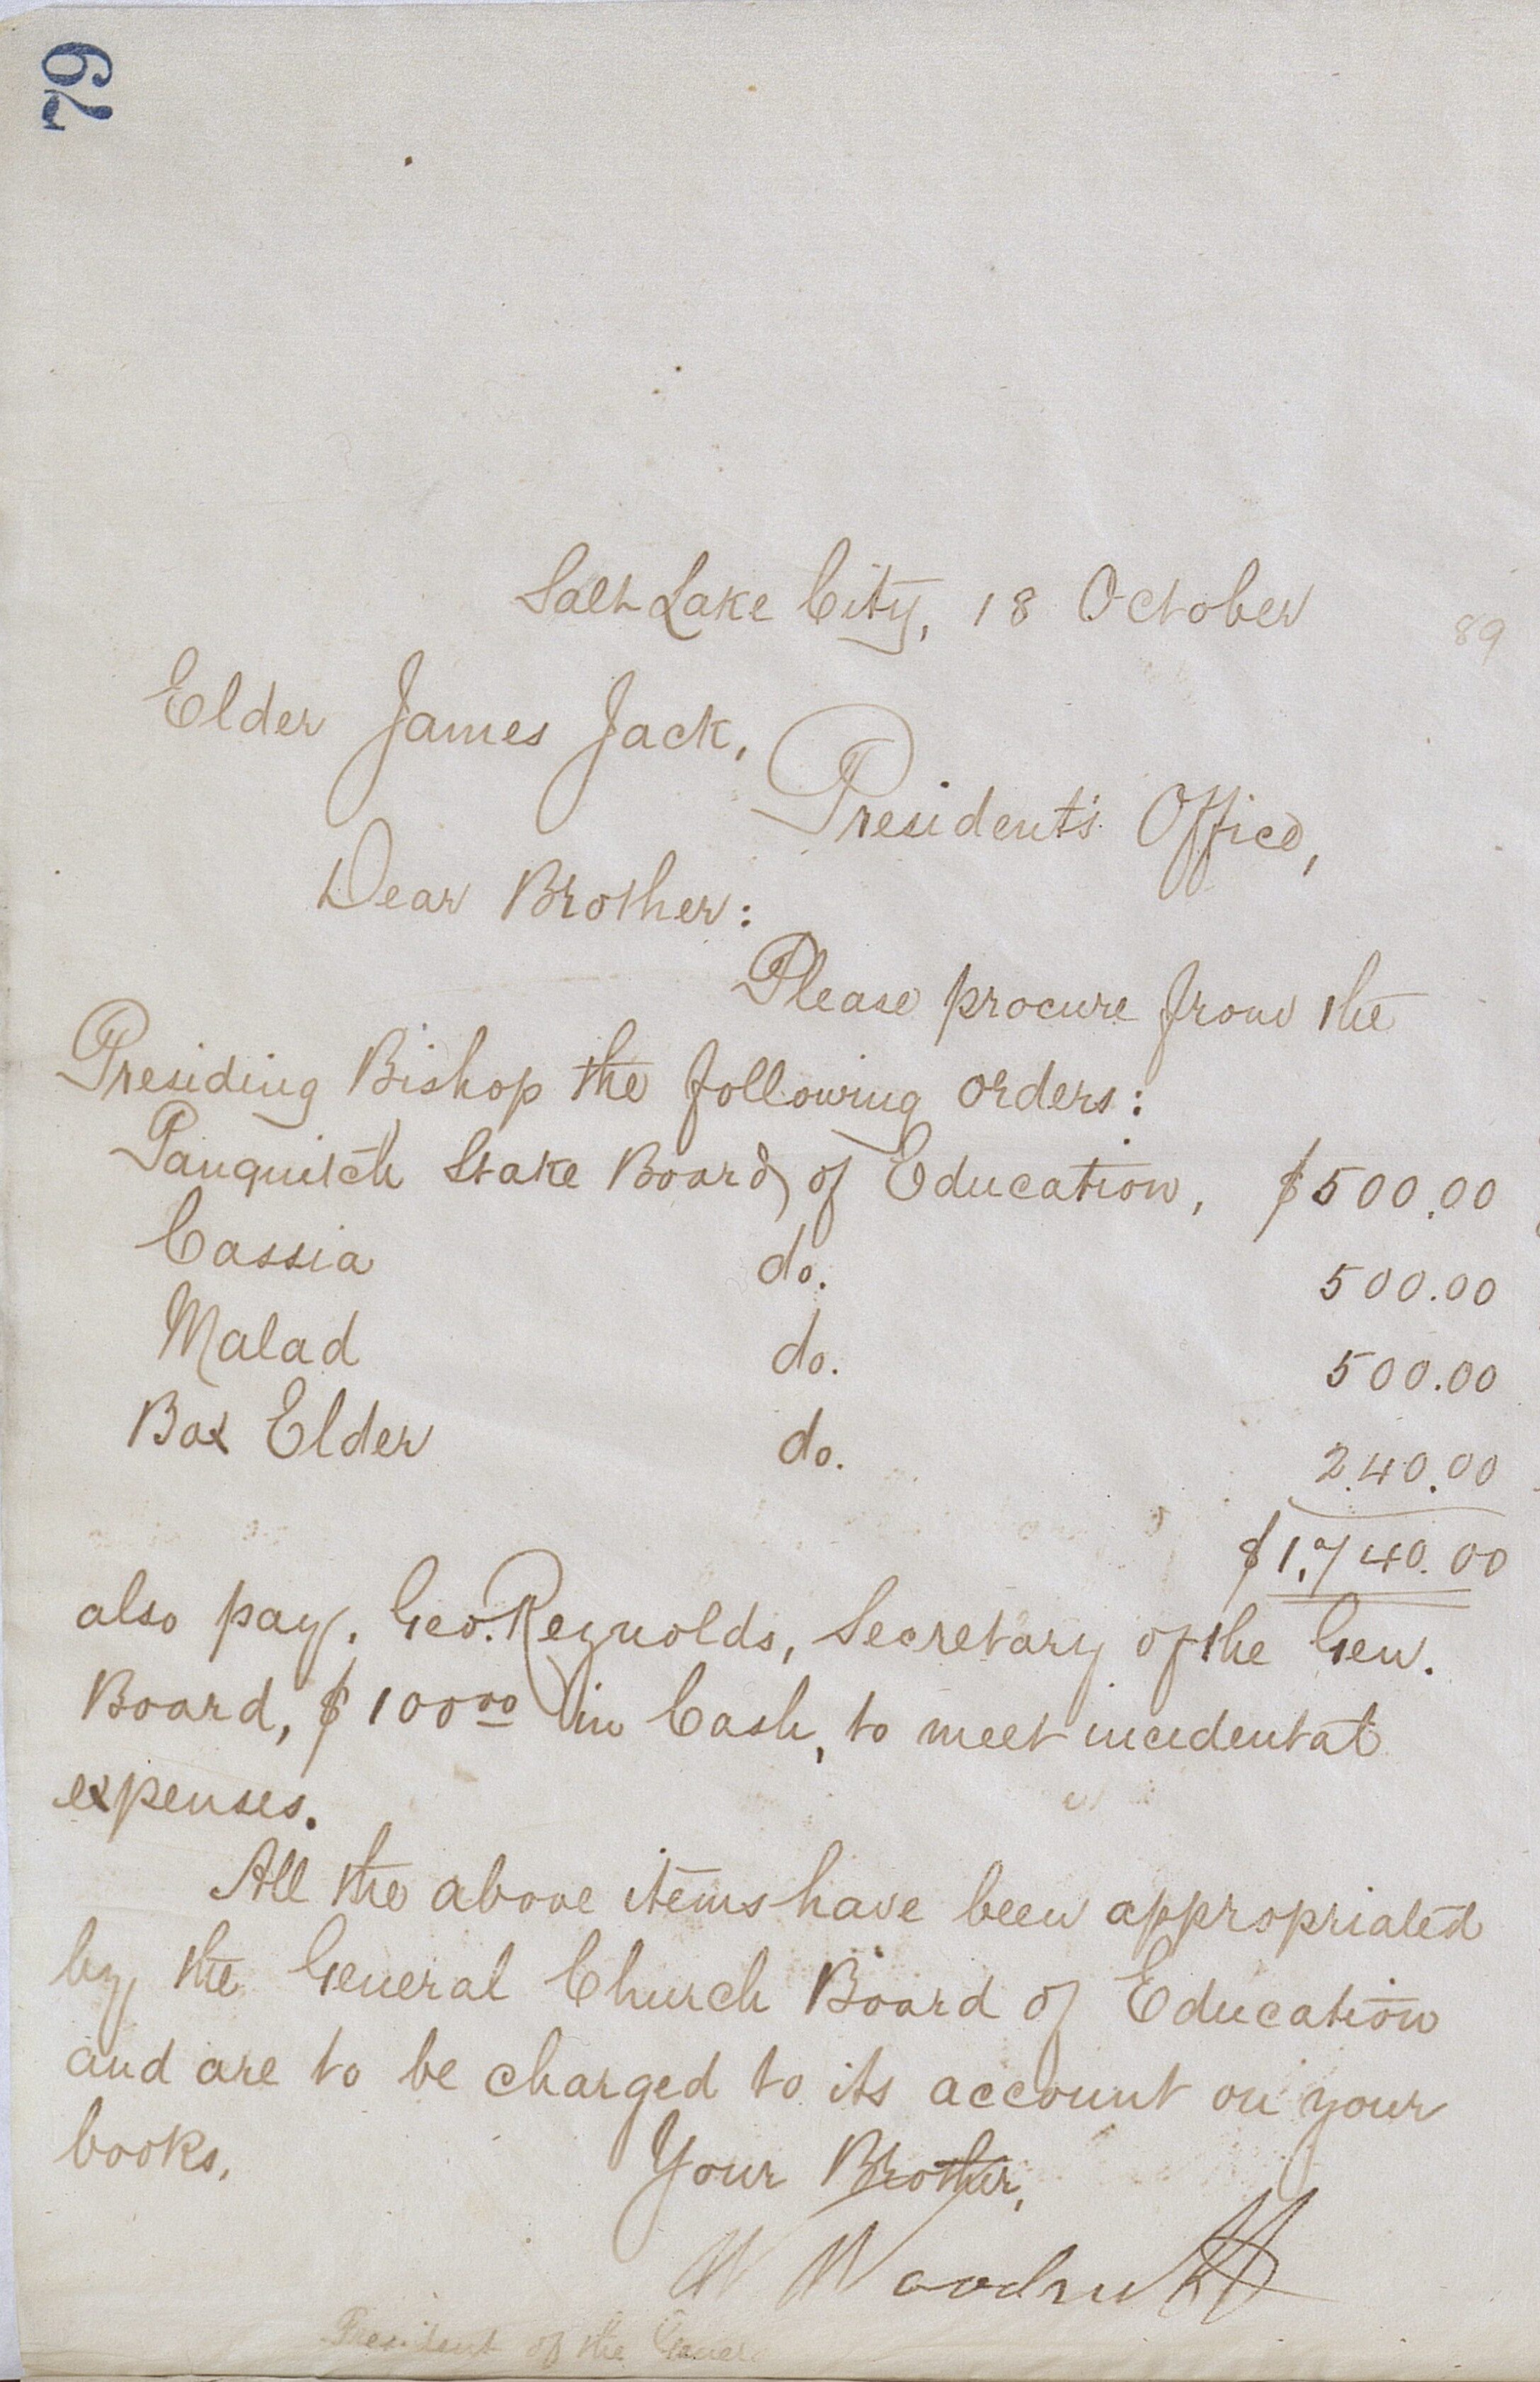 79
Salt Lake City, 18 October 89
Elder James Jack,
President's Office,
Dear Brother:
Please procure from the
Presiding Bishop the following orders:
Panguitch Stake Board of Education, $500.00
Cassia do. 500.00
Malad do. 500.00
Box Elder do. 240.00
$1,740.00
also pay. Geo. Reynolds, Secretary of the Gen.
Board, $100 00 in Cash, to meet incidental
expenses.
All the above items have been appropriated
by the General Church Board of Education
and are to be charged to its account on your
books.
Your Brother,
W Woodruff
President of the General